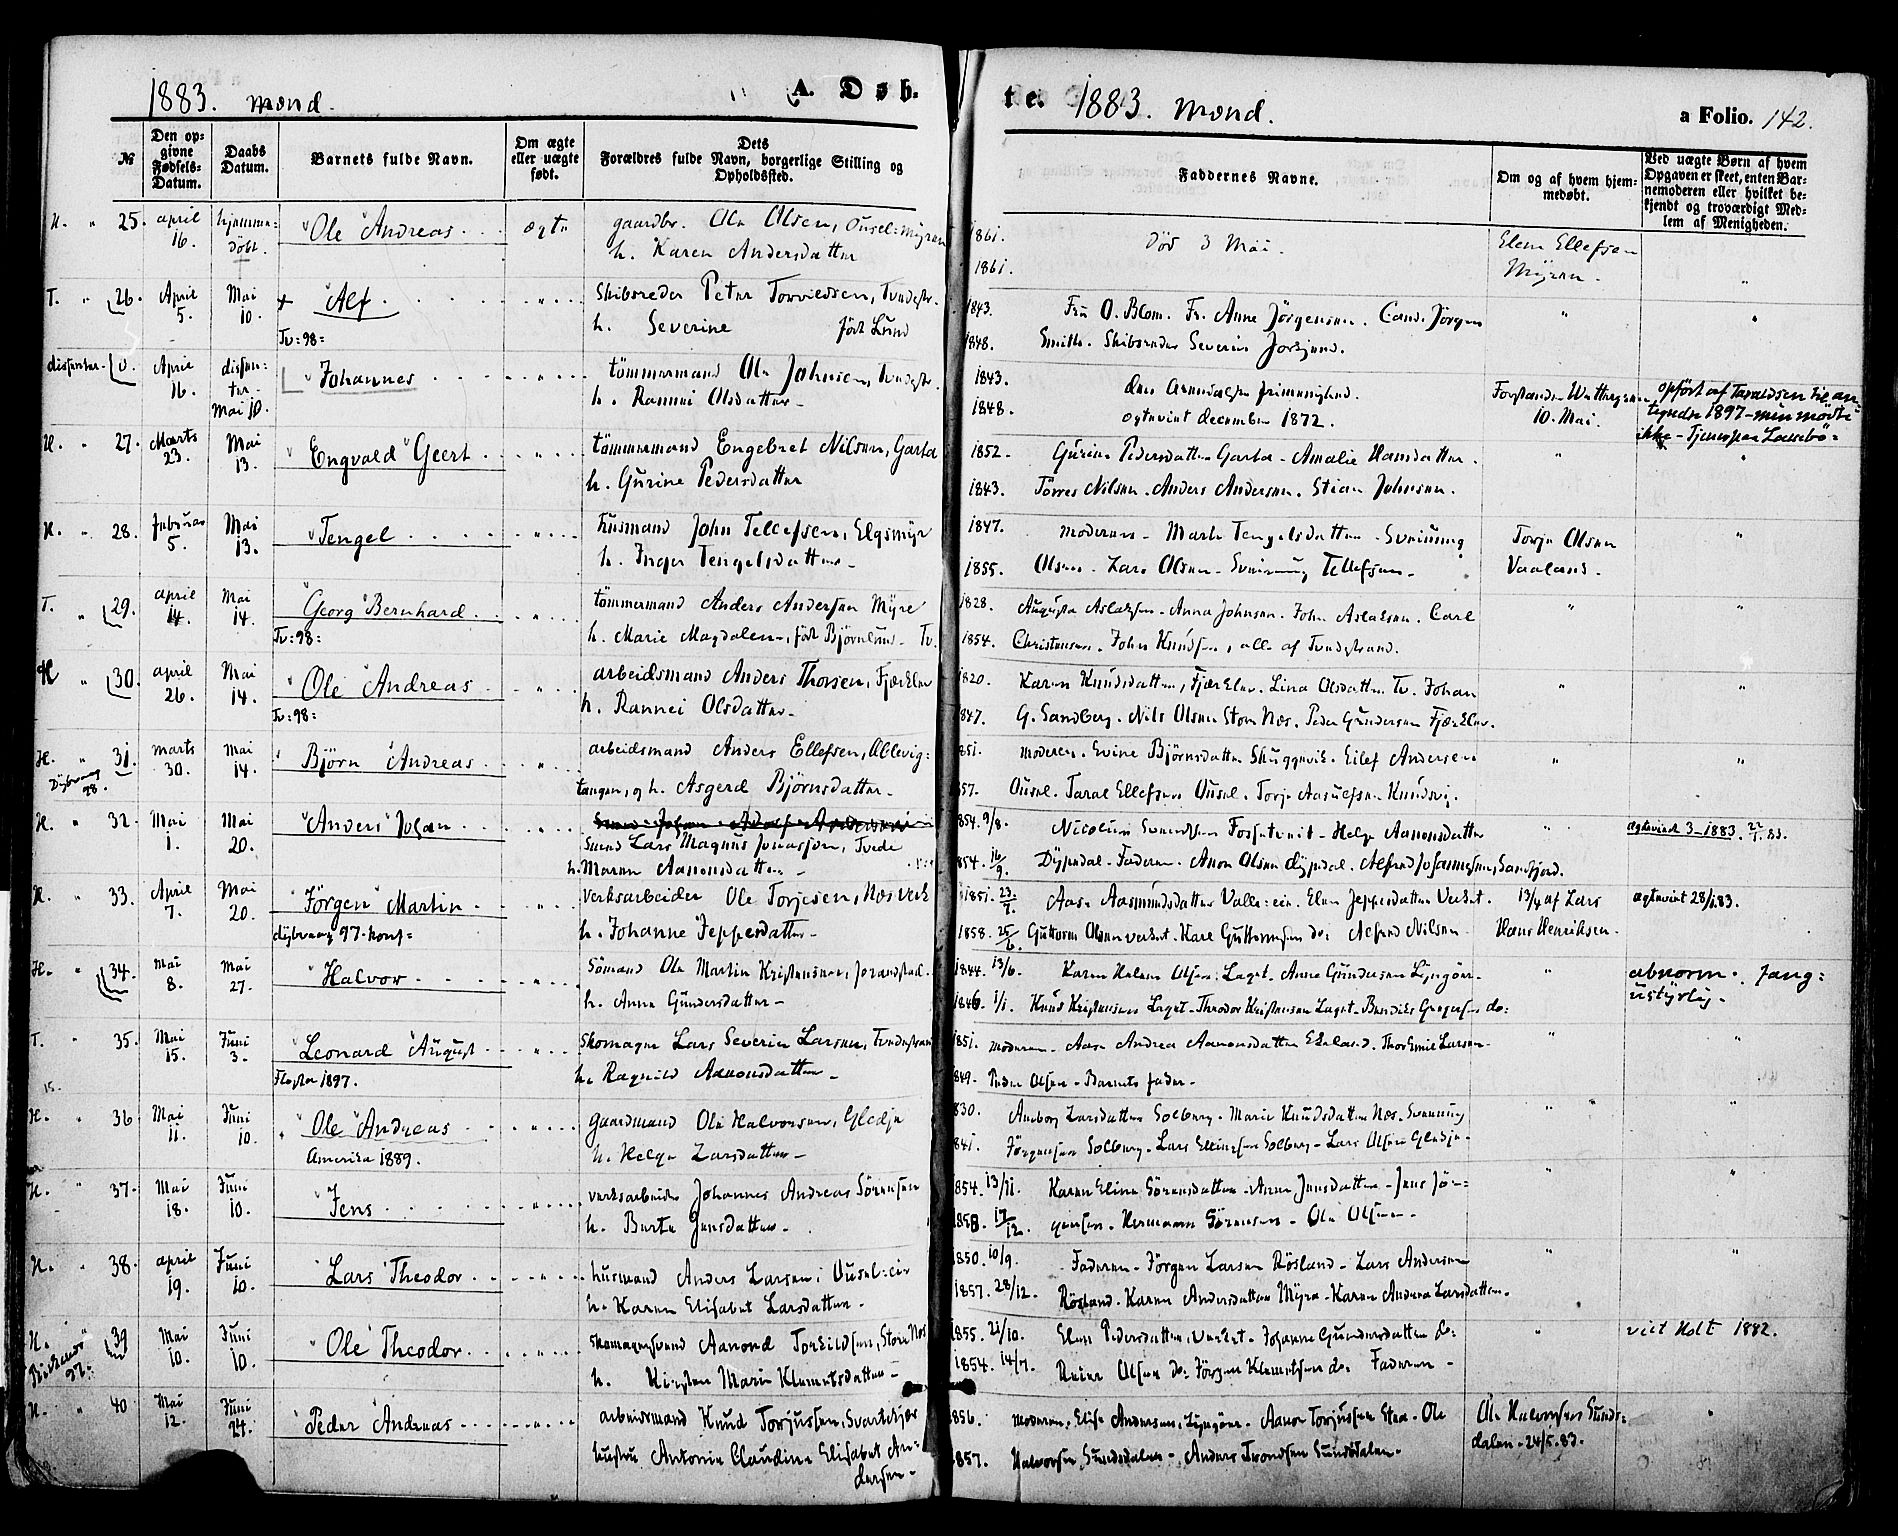 1883. mænd.
A. Døb-
te. 1883. mænd.
a Folio. 142.
№
Den op-
givne
Fødsels-
Datum.
Daabs
Datum.
Barnets fulde Navn.
Om ægte
eller uægte
født.
Dets
Forældres fulde Navn, borgerlige Stilling og
Opholdssted.
Faddernes Navne.
Om og af hvem hjem-
medøbt.
Ved uægte Børn af hvem
Opgaven er skeet, enten Bar-
nemoderen eller hvilket be-
kjendt og troværdigt Med-
lem af Menigheden.
H. " 25. april 16. hjemme-døbt. Ole Andreas ægte
gaardbr. Ole Olsen, Ousel-myren 1861.
h. Karen Andersdatter 1861.
Død 3 Mai.
Elen Ellefsen
Myren.
T. " 26. April 5. Mai 10. + Alf
Tv: 98:
Skibsreder Peter Torvildsen, Tvedestr. 1843.
h. Severine født Lund 1848.
Fru O. Blom. Fr. Anne Jörgensen. Cand. Jörgen
Smith. Skibsreder Severin
dissenter. 0. April 16. dissen-ter. Mai 10. Johannes
tömmermand Ole Johnsen, Tvedestr. 1843.
h. Rannei Olsdatter 1848.
den Arendalske frimenighed.
ægteviet december 1872.
Forstander
10. Mai.
opført af Taraldsen til an-
1897 - men mødte
ikke -
H. " 27. Marts 23. Mai 13. Engvald Geert
tömmermand Engebret Nilsen, Garta 1852.
h. Gurine Pedersdatter 1843.
Gurine Pedersdatter Garta - Amalie Hansdatter.
Torres Nilsen. Anders Andersen. Stian Johnsen.
H. " 28. Februar 5. Mai 13. Tengel
husmand John Tellefsen, Elgsmyr 1847.
h. Inger Tengelsdatter 1855.
moderen - Marte Tengelsdatter - Svenning
Olsen - Lars Olsen - Svenning Tellefsen -
Torje Olsen
Vaaland.
T. " 29. april 14. Mai 14. Georg Bernhard
Tv: 98:
tömmermand Anders Andersen Myre 1828.
h. Marie Magdalene, født Björnlund - Tv. 1854.
Augusta Aslaksen - Anna Johnsen. John Aslaksen. Carl
Christensen. John Knudsen, alle af Tvedestrand.
H " 30. april 26. Mai 14. Ole Andreas
Tv: 98:
arbeidsmand Anders Thorsen, Fjærelev 1820.
h. Rannei Olsdatter 1847.
Karen Knudsdatter, Fjærelev. Lina Olsdatter Tv. Johan
G. Sandberg. Nils Olsen Store Næs. Peder Gundersen Fjærelev.
H. " 31. marts 30. Mai 14. Björn Andreas
Dybvaag 98.
arbeidsmand Anders Ellefsen, Ollevig-
tangen, og h. Asgerd Björnsdatter
moderen. Evine Björnsdatter Skuggevik. Eilef Andersen
Ousel. Taral Ellefsen Ousel. Torje Aasulfsen Knudsvig.
H. " 32. Mai 1. Mai 20. Anders Johan
Svend Lars Magnus Jonassen, Tvede 1854. 9/8.
h. Maren Aanonsdatter 1854. 16/9.
Nicoline Svendsen Fossetveit - Helge Aanonsdatter
Dypedal. Faderen. Anon Olsen Dypedal. Alfred Johannesen, Sandfjord.
ægteviedt 3-1883.
H. " 33. April 7. Mai 20. Jörgen Martin
dybvaag 97. konf:
Verksarbeider Ole Torjesen, Næs Verk 1851.
h. Johanne Jeppesdatter 1858.
Aase Aasmundsdatter Valle-eie. Elen Jeppesdatter Verket.
Guttorm Olsen verket. Karl Guttormsen do: Alfred Nilsen
13/4 af Lars
Hans Henriksen.
ægteviet 28/1.83.
H. " 34. Mai 8. Mai 27. Halvor
Sömand Ole Martin Kristensen, 1844. 13/6.
h. Anne Gundersdatter 1846. 1/1.
Karen Helene Olsen, Laget. Anne Gundersen Lyngör
Knud Kristensen Laget - Theodor Kristensen Laget. do:
abnorm.
ustyrlig.
T. " 35. Mai 15. Juni 3. Leonard August
Flosta 1897.
Skomager Lars Severin Larsen, Tvedestrand 1851.
h. Ragnild Aanonsdatter 1849.
moderen - Aase Andrea Aanonsdatter Ekeland. Thor Emil Larsen.
Peder Olsen - Barnets fader -
15.
H. " 36 Mai 11. Juni 10. Ole Andreas
Amerika 1889.
gaardmand Ole Halvorsen, Gledje 1830.
h. Helge Larsdatter 1841.
Anborg Larsdatter Solberg. Marie Knudsdatter Næs. Svenning
Jörgensen Solberg. Lars Ellingsen Solberg. Lars Olsen Gledje.
H. " 37. Mai 18. Juni 10. Jens
verksarbeider Johannes Andreas Sörensen 1854. 13/11.
h. Berte Jensdatter 1858. 17/12.
Karen Eline Sörensdatter - Anne Jensdatter - Jens Jör-
gensen. Hermann Sörensen - Ole Olsen
H. " 38. april 19. Juni 10. Lars Theodor
husmand Anders Larsen, Ousel-eie 1850. 10/9.
h. Karen Elisabet Larsdatter 1857. 28/12.
Faderen - Jörgen Larsen Rösland - Lars Andersen
Rösland. Karen Andersdatter Myra - Karen Andrea Larsdatter.
H. " 39 Mai 10. Juni 10. Ole Theodor
97:
skomagersvend Aanond Torkildsen, Store Næs 1855. 21/10.
h. Kirsten Marie Klemetsdatter 1854. 14/7.
Elen Pedersdatter, Verket. Johanne Gundersdatter do:
Reier Olsen do: Jörgen Klemetsen do: Faderen -
viet Holt 1882.
H. " 40 Mai 12. Juni 24. Peder Andreas
arbeidsmand Knud Torjussen, Svartekjær 1856.
hustru Antonie Claudine Elisabet An-
dersen 1857.
moderen. Elise Andersen, Lyngör. Aanon Torjussen. Ole
Halvorsen Sundsdalen - Anders Trondsen Sundsdalen.
Ole Halvorsen Sunds-
dalen. 24/5.83.